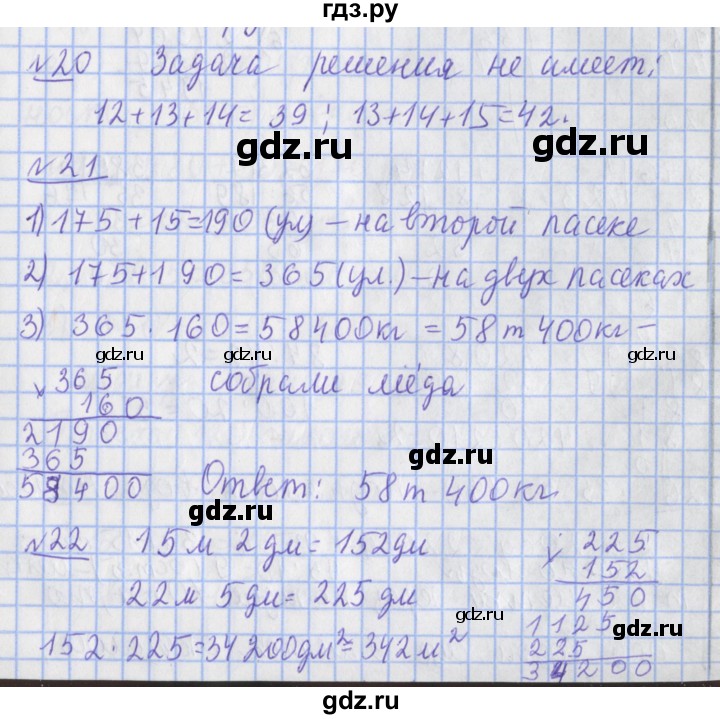 гдз.ру
№20 Задача решения не имеет;
12+13+14= 39; 13+14+15=42.
gdz.ru gdz.ru
№21
1) 175+15=190 (ул) – на второй пасеке
2) 175+190= 365 (ул.) – на двух пасеках
3) 365 · 160 = 58400кг = 58т 400кг –
gdz.ru gdz.ru gdz.ru
× 365 собрали мёда
160
2190
365 gdz.ru gdz.ru
58400 Ответ: 58т 400кг
№22 15м 2дм= 152дм × 225
152
22м 5дм= 225 дм 450
1125
gdz.ru gdz.ru gdz.ru
152 · 225 =34200дм²= 342м² 225
34200
gdz.ru